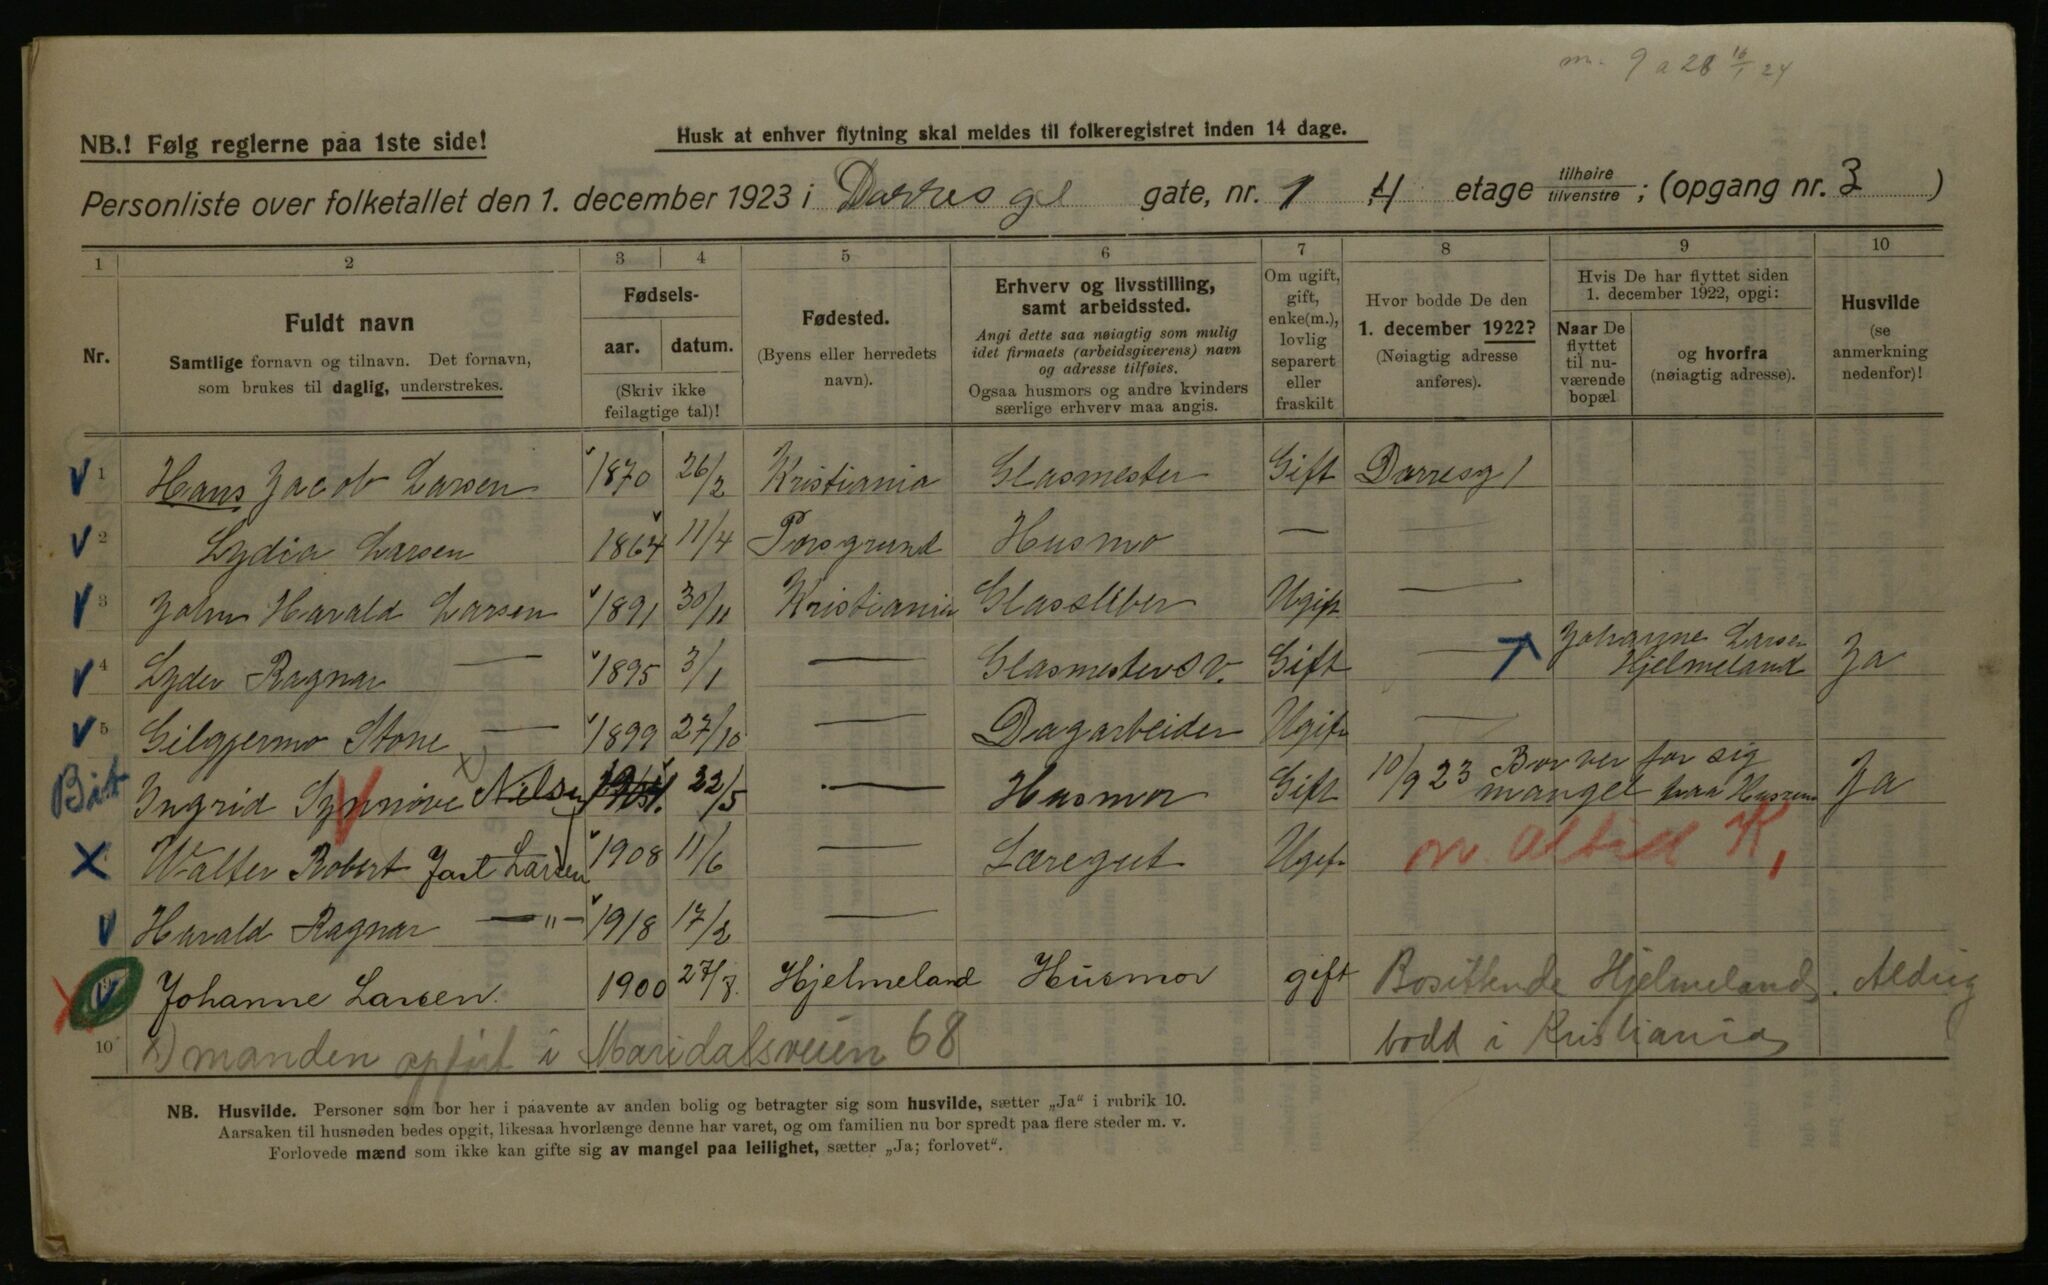 m. 9 a 28 16/1 24
NB.! Følg reglerne paa 1ste side!
Husk at enhver flytning skal meldes til folkeregistret inden 14 dage.
Personliste over folketallet den 1. december 1923 i Darres gt gate, nr. 1 4 etage tilhøire/tilvenstre; (opgang nr. 3)
1 2 3 4 5 6 7 8 9 10
Nr.
Fuldt navn
Samtlige fornavn og tilnavn. Det fornavn,
som brukes til daglig, understrekes.
Fødsels-
aar. datum.
(Skriv ikke
feilagtige tal)!
Fødested.
(Byens eller herredets
navn).
Erhverv og livsstilling,
samt arbeidssted.
Angi dette saa nøiagtig som mulig
idet firmaets (arbeidsgiverens) navn
og adresse tilføies.
Ogsaa husmors og andre kvinders
særlige erhverv maa angis.
Om ugift,
gift,
enke(m.),
lovlig
separert
eller
fraskilt
Hvor bodde De den
1. december 1922?
(Nøiagtig adresse
anføres).
Hvis De har flyttet siden
1. december 1922, opgi:
Naar De
flyttet
til nu-
værende
bopæl
og hvorfra
(nøiagtig adresse).
Husvilde
(se
anmerkning
nedenfor)!
V 1 Hans Jacob Larsen 1870 26/2 Kristiania Glasmester Gift Darresg 1
V 2 Lydia Larsen 1864 11/4 Porsgrund Husmo — —
V 3 John Harald Larsen 1891 30/11 Kristiania Glassliber Ugift —
Johanne Larsen
V 4 Lyder Ragnar — 1895 3/1 — Glasmestersv. Gift — Hjelmeland Ja
V 5 Gilgjermo Stone — 1899 27/10 — Dagarbeider Ugift —
Båt Ingrid Synnöve Nilsen 22/5 — Husmor Gift 10/9 23 Bor ver for sig
mangel paa Husrum Ja
X Walter Robert Jarl Larsen 1908 11/6 — Læregut Ugift
V Harald Ragnar — " — 1918 17/2 —
X V Johanne Larsen. 1900 27/8. Hjelmeland Husmor gift Bosittende Hjelmeland. Aldrig
10 x) manden opført i Maridalsveien 68 bodd i Kristiania
NB. Husvilde. Personer som bor her i paavente av anden bolig og betragter sig som husvilde, sætter „Ja“ i rubrik 10.
Aarsaken til husnøden bedes opgit, likesaa hvorlænge denne har varet, og om familien nu bor spredt paa flere steder m. v.
Forlovede mænd som ikke kan gifte sig av mangel paa leilighet, sætter „Ja; forlovet“.